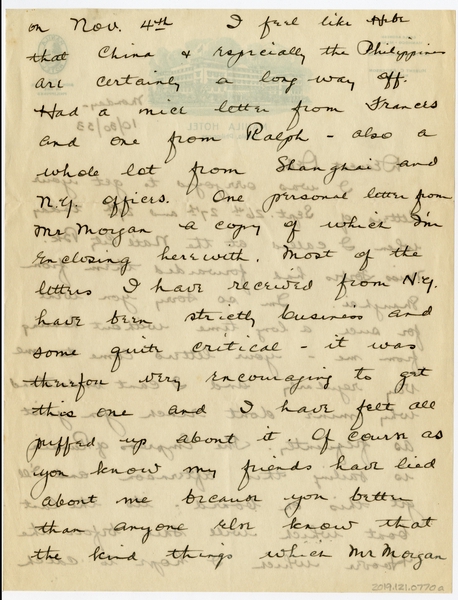 on Nov. 4th I feel like
that China & especially the Philippines
are certainly a long way off.
Had a nice letter from Frances
and one from Ralph - also a
whole lot from Shanghai and
N.Y. offices. One personal letter from
Mr Morgan a copy of which I'm
enclosing herewith. Most of the
letters I have received from N.Y.
have been strictly business and
some quite critical - it was
therefore very encouraging to get
this one and I have felt all
puffed up about it. Of course as
you know my friends have lied
about me because you better
than anyone else know that
the kind things which Mr Morgan
2019.121.0770a